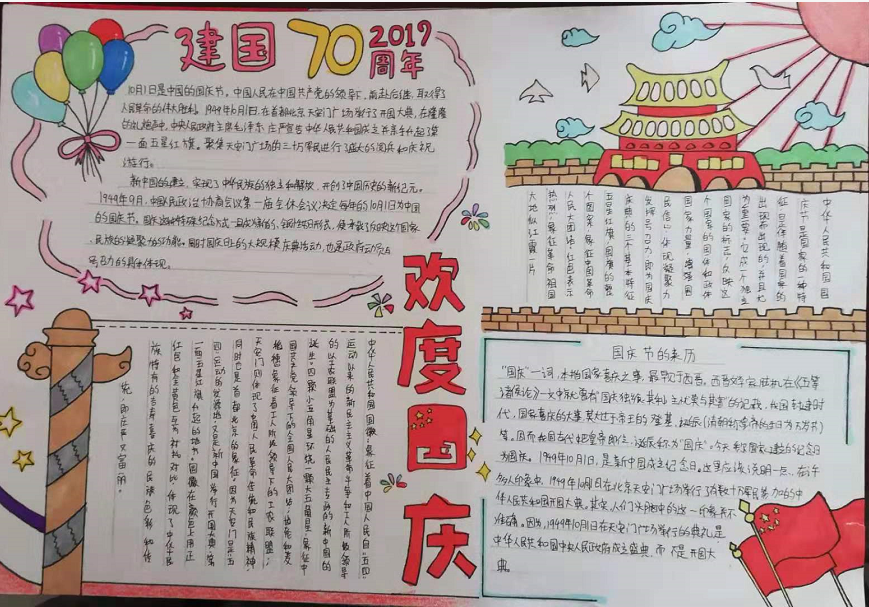 建国70 2019周年
10月1日是中国的国庆节。中国人民在中国共产党的领导下,前赴后继,取得了
人民革命的伟大胜利。1949年10月1日,在首都北京天安门广场举行了开国大典,在隆隆
的礼炮声中,中央人民政府主席毛泽东庄严宣告中华人民共和国成立并亲手升起了第
一面五星红旗。聚集天安门广场的三十万军民进行了盛大的阅兵和庆祝
游行。
新中国的建立,实现了中华民族的独立和解放,开创了中国历史的新纪元。
1949年9月,中国民政治协商会议第一届全体会议决定每年的10月1日为中国
的国庆节。国庆这种特殊纪念方式一旦成为
民族的凝聚力的功能。同时国庆日上的大规模庆典活动,也是政府动员与
号召力的具体体现。
中华人民共和国国
庆节是国家的一种特
征,是伴随着国家的
出现而出现的,并且尤
为重要。它成一个独立
国家的标志,反映这
个国家的国体和政体
国家力量,增强国
民信心,体现凝聚力
发挥号召力,即为国庆
庆典的三个基本特征
五星红旗,国旗的整
个图案,象征中国革命
人民大团结。红色表示
热烈,象征革命,祖国
大地似红霞一片
欢度国庆
中华人民共和国国徽:象征着中国人民自"五四"
运动以来的新民主主义革命斗争和工人阶级领导
的以工农联盟为基础的人民民主专政的新中国的
诞生。四颗小五角星环绕一颗大五角星,象征中
国共产党领导下的全国人民大团结,齿轮和麦
稻穗象征着工人阶级领导下的工农联盟;
天安门则体现了中国人民革命传统和民族精神,
同时也是首都北京的象征。因为天安门是五
四运动的发源地,又是新中国举行开国大典,第
一面五星红旗升起的地方。国徽在颜色上用正
红色和金黄色互为衬托对比,体现了中华民
族特有的吉寿喜庆的民族色彩和传
统,即庄严又富丽。
国庆节的来历
"国庆"一词,本指国家喜庆之事,最早见于西晋。西晋文学家陆机在《五等
诸侯论》一文中就曾有"国庆独飨其利,主忧莫与其害"的记载,我国封建时
代,国家喜庆的大事,莫大过于帝王的登基、诞辰(清朝称皇帝的生日为万岁节)
等。因而我国古代把皇帝即位、诞辰称为"国庆"。今天称国家建立的纪念日
为国庆。1949年10月1日,是新中国成立纪念日。这里应该说明一点,在许
多人印象中,1949年10月1日在北京天安门广场举行了有数十万军民参加的中
华人民共和国开国大典。其实,人们头脑中的这一印象并不
准确。因为,1949年10月1日在天安门广场举行的典礼是
中华人民共和国中央人民政府成立盛典,而不是开国大
典。